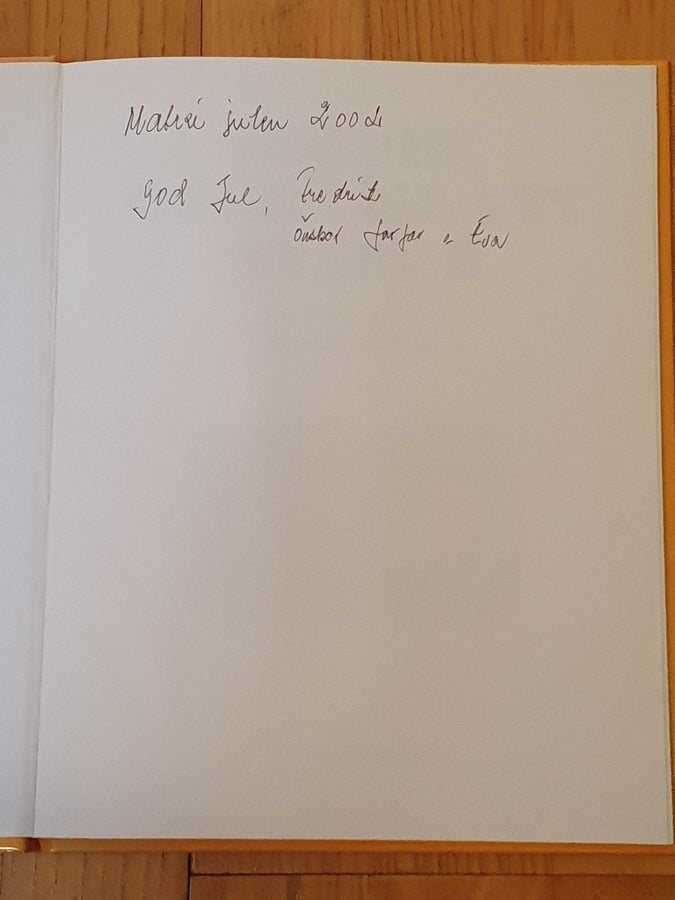 julen 2004
God Jul, Fredrik
Önskar farfar o Eva